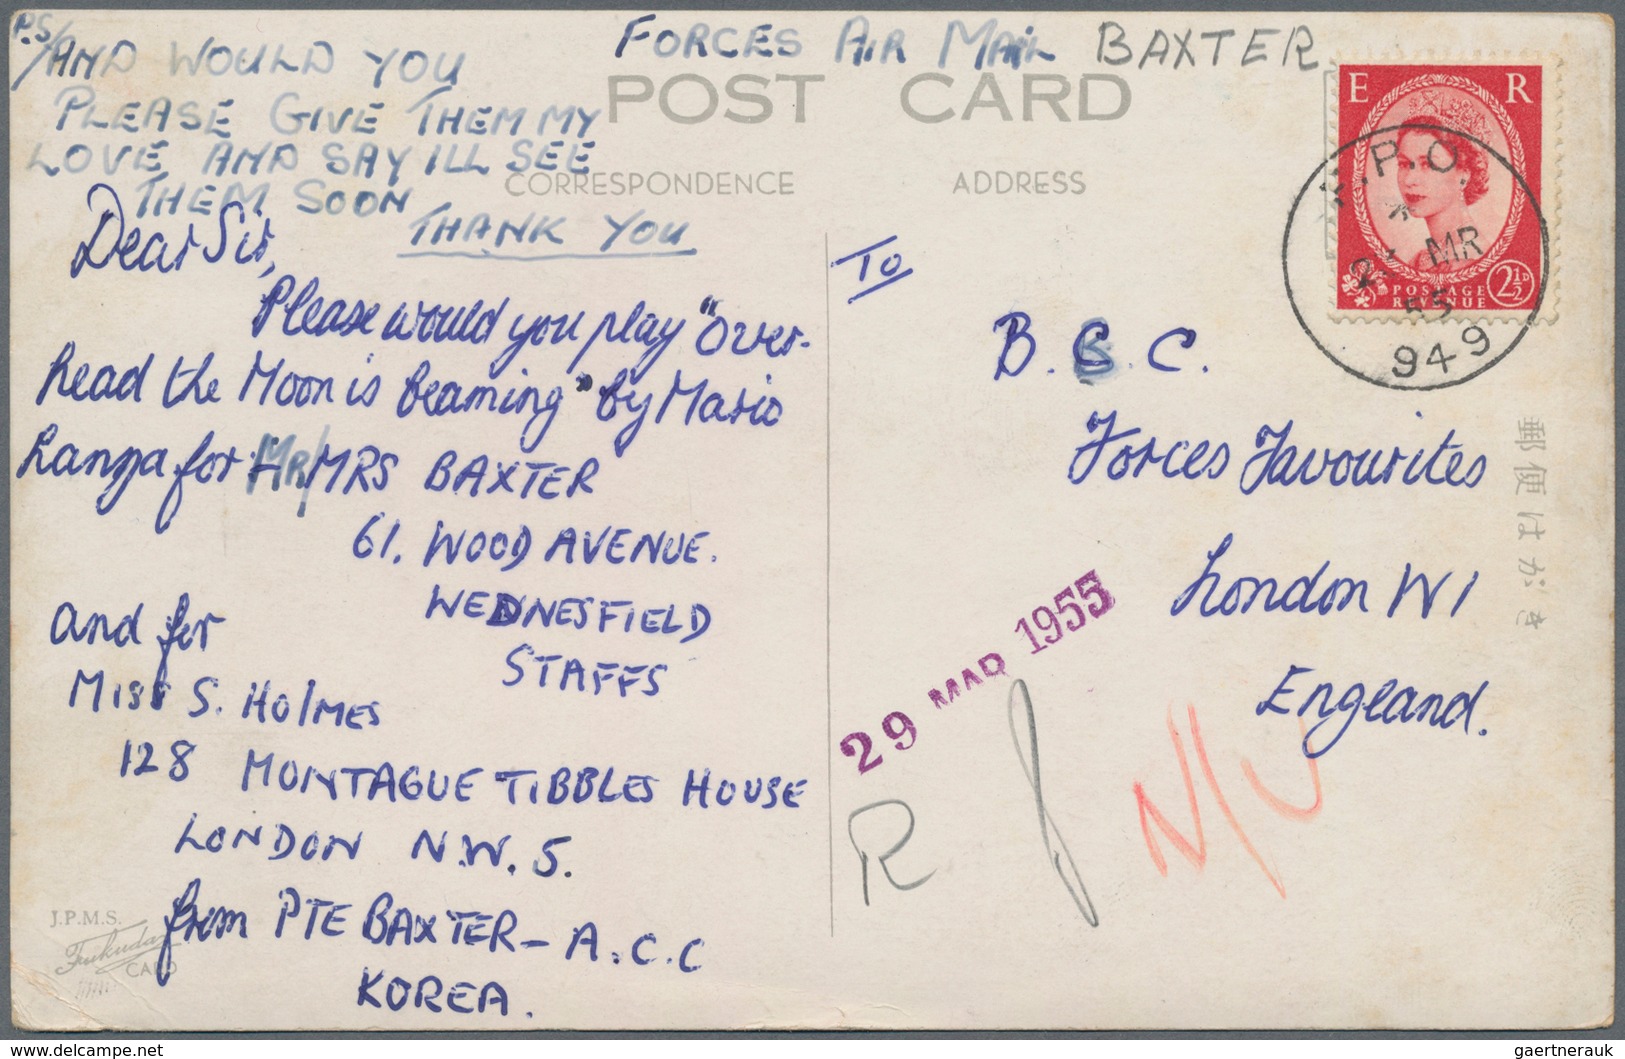 P.S/
AND WOULD YOU
PLEASE GIVE THEM MY
LOVE AND SAY ILL SEE
THEM SOON
THANK YOU
FORCES AIR MAIL BAXTER
POST CARD
CORRESPONDENCE
ADDRESS
Dear Sir,
Please would you play "Over-
head the Moon is beaming" by Mario
Lanza for MR/MRS BAXTER
61. WOOD AVENUE.
WEDNESFIELD
STAFFS
and for
MISS S. HOLMES
128 MONTAGUE TIBBLES HOUSE
LONDON N.W. 5.
from PTE BAXTER - A.C.C
KOREA.
J.P.M.S.
Fukuda
CARD
To
B.B.C.
Forces Favourites
London W1
England.
E R
POSTAGE
REVENUE
2½D
F.P.O.
MR
55
949
郵便はがき
29 MAR 1955
R
N/U
www.delcampe.net
gaertnerauk